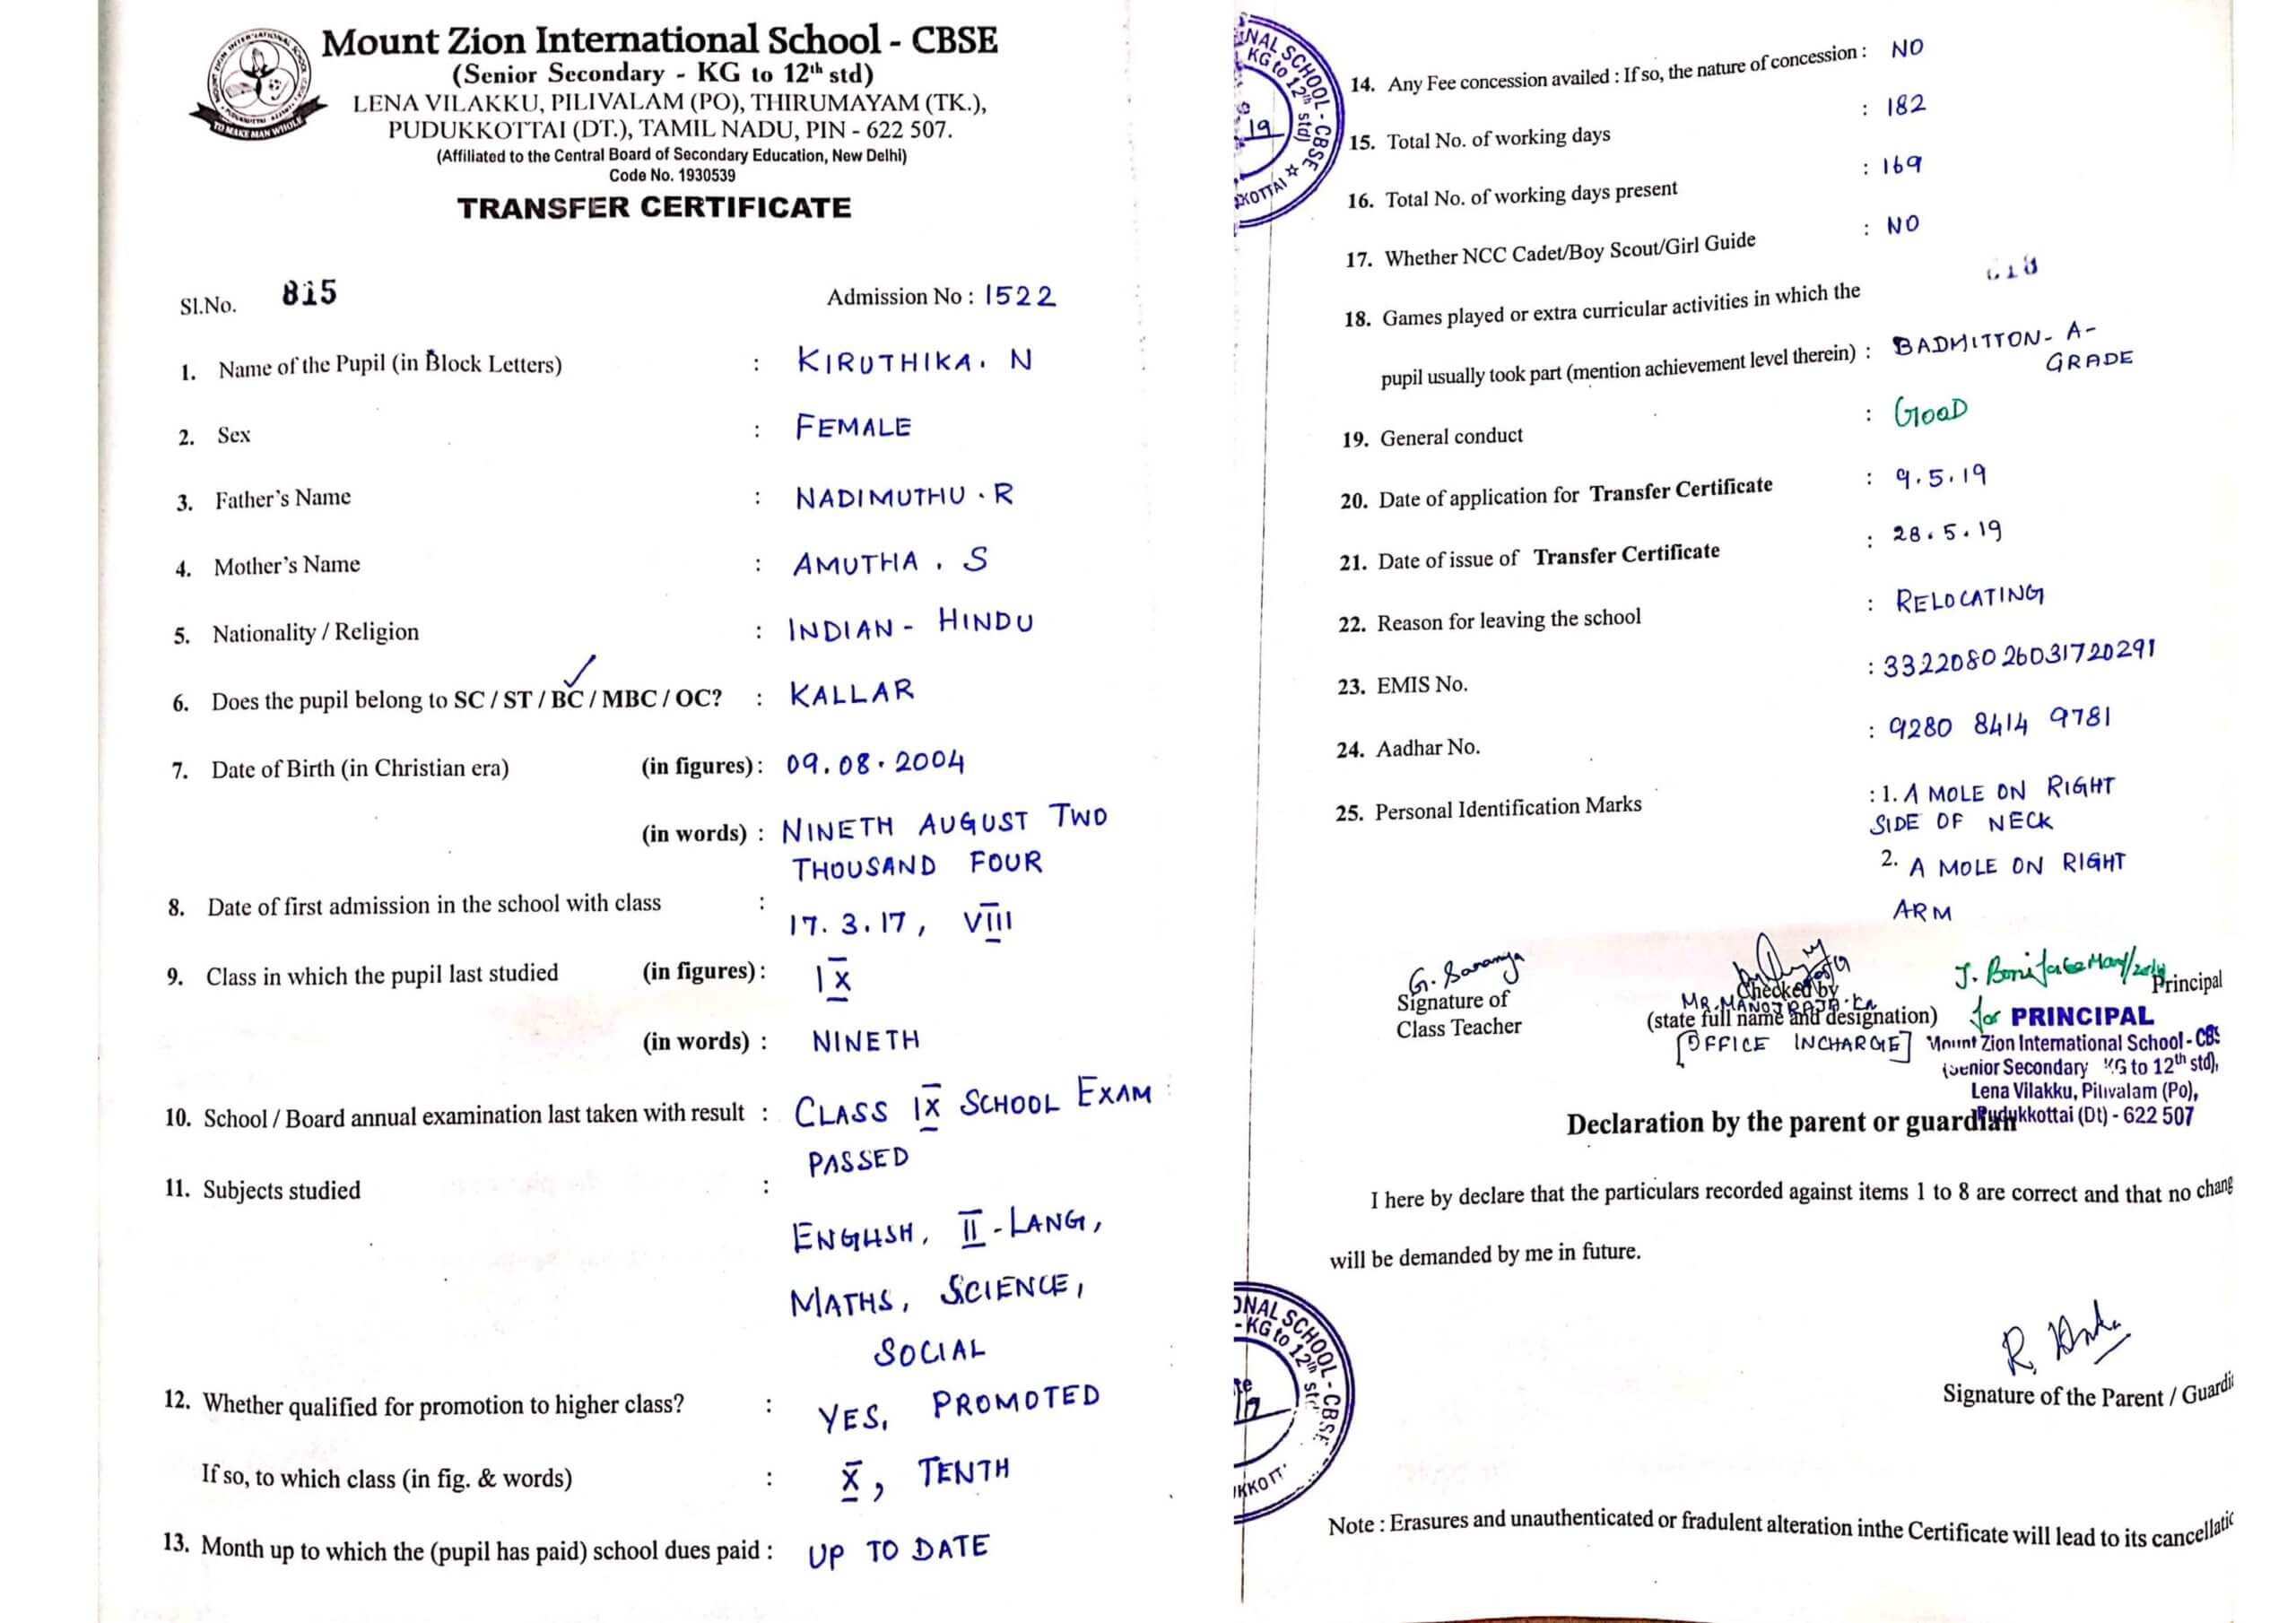 Mount Zion International School - CBSE
(Senior Secondary - KG to 12th std)
LENA VILAKKU, PILIVALAM (PO), THIRUMAYAM (TK.),
PUDUKKOTTAI (DT.), TAMIL NADU, PIN - 622 507.
(Affiliated to the Central Board of Secondary Education, New Delhi)
Code No. 1930539
TO MAKE MAN WHOLE
TRANSFER CERTIFICATE
Sl.No. 815 Admission No : 1522
1. Name of the Pupil (in Block Letters) : KIRUTHIKA. N
2. Sex : FEMALE
3. Father's Name : NADIMUTHU . R
4. Mother's Name : AMUTHA . S
5. Nationality / Religion : INDIAN - HINDU
6. Does the pupil belong to SC / ST / BC / MBC / OC? : KALLAR
7. Date of Birth (in Christian era) (in figures) : 09.08.2004
(in words) : NINETH AUGUST TWO
THOUSAND FOUR
8. Date of first admission in the school with class :
17. 3. 17, VIII
9. Class in which the pupil last studied (in figures) : IX
(in words) : NINETH
10. School / Board annual examination last taken with result : CLASS IX SCHOOL EXAM
PASSED
11. Subjects studied :
ENGLISH, II - LANG,
MATHS, SCIENCE,
SOCIAL
12. Whether qualified for promotion to higher class? : YES, PROMOTED
If so, to which class (in fig. & words) : X, TENTH
13. Month up to which the (pupil has paid) school dues paid : UP TO DATE
NAL SCHOOL - CBSE
KG to 12th std)
19
KOTTAI ☆
14. Any Fee concession availed : If so, the nature of concession : NO
15. Total No. of working days : 182
16. Total No. of working days present : 169
17. Whether NCC Cadet/Boy Scout/Girl Guide : NO
18. Games played or extra curricular activities in which the
pupil usually took part (mention achievement level therein) : BADMITTON - A-
GRADE
19. General conduct : GOOD
20. Date of application for Transfer Certificate : 9.5.19
21. Date of issue of Transfer Certificate : 28.5.19
22. Reason for leaving the school : RELOCATING
23. EMIS No. : 332208026031720291
24. Aadhar No. : 9280 8414 9781
25. Personal Identification Marks : 1. A MOLE ON RIGHT
SIDE OF NECK
2. A MOLE ON RIGHT
ARM
G. Saranya
Signature of
Class Teacher
Checked by
MR. MANOJRAJA
(state full name and designation)
[OFFICE INCHARGE]
Principal
for PRINCIPAL
Mount Zion International School - CBS
(Senior Secondary KG to 12th std),
Lena Vilakku, Pilivalam (Po),
Pudukkottai (Dt) - 622 507
Declaration by the parent or guardian
I here by declare that the particulars recorded against items 1 to 8 are correct and that no chang
will be demanded by me in future.
ONAL SCHOOL - CBSE
- KG to 12th st
KKOTT
Signature of the Parent / Guardi
Note : Erasures and unauthenticated or fradulent alteration inthe Certificate will lead to its cancellatic